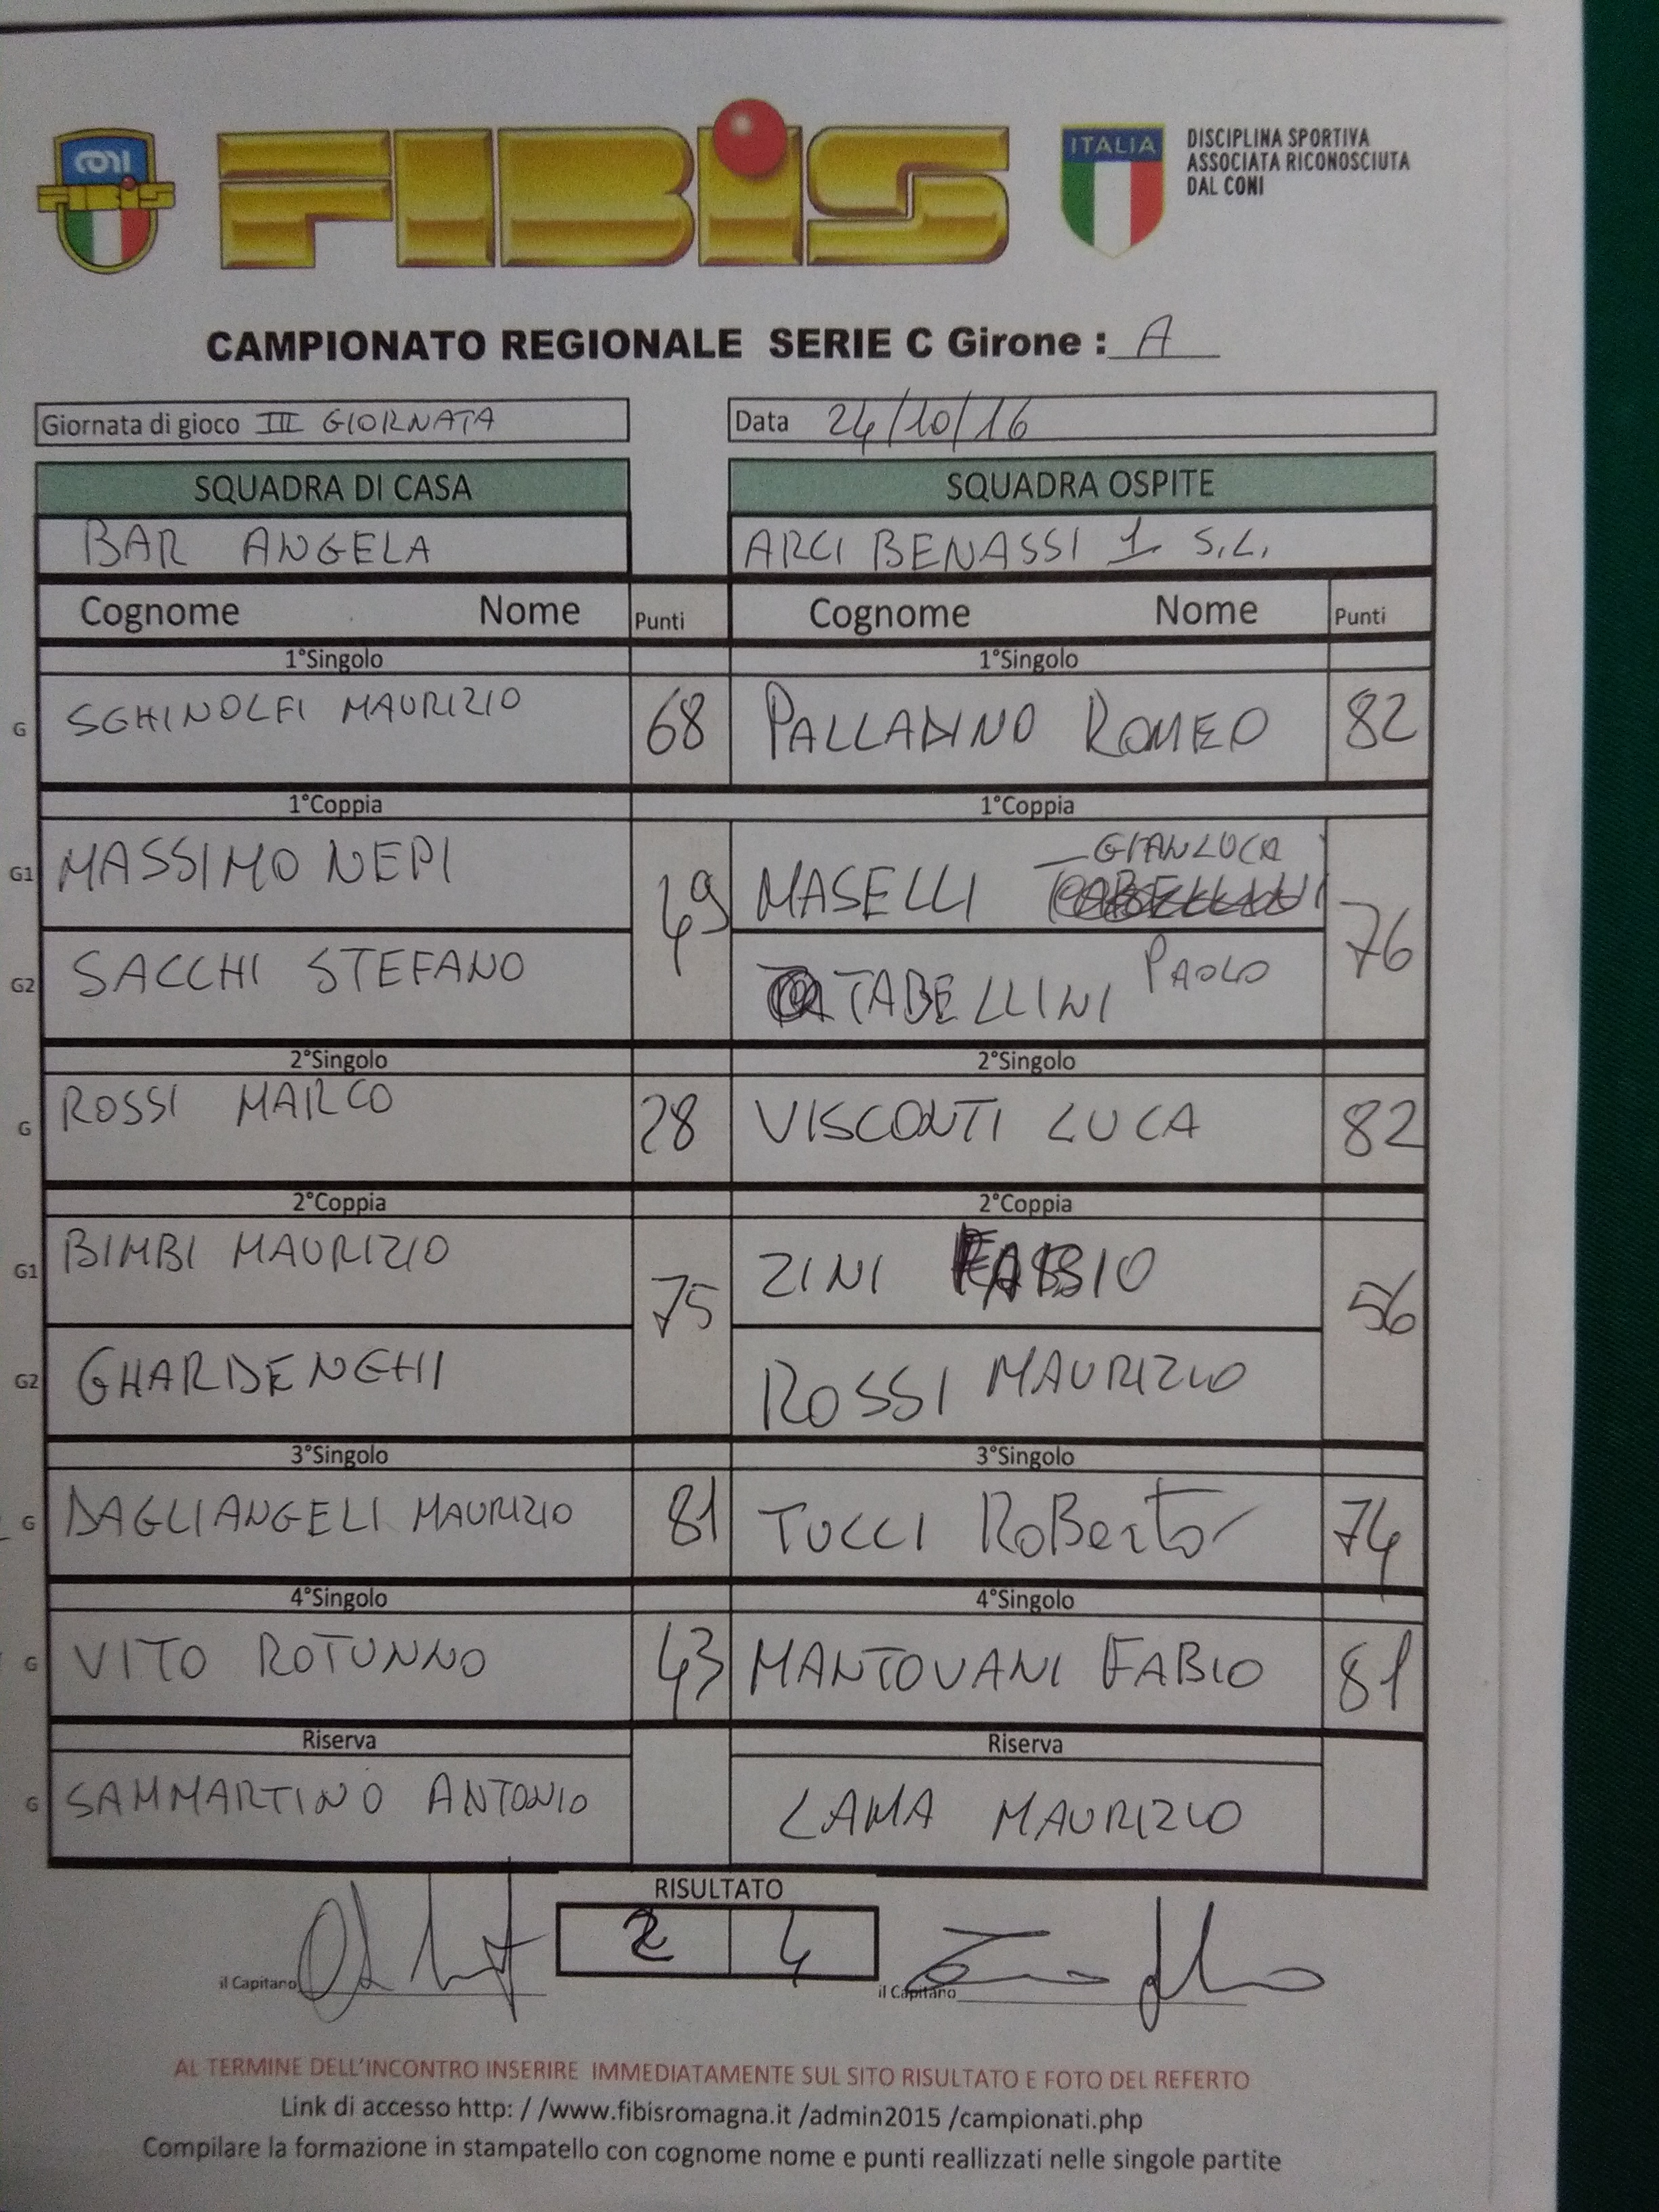 CONI
FIBIS
FIBiS
ITALIA
DISCIPLINA SPORTIVA
ASSOCIATA RICONOSCIUTA
DAL CONI
CAMPIONATO REGIONALE SERIE C Girone : A
Giornata di gioco III GIORNATA
Data 24/10/16
SQUADRA DI CASA
SQUADRA OSPITE
BAR ANGELA
ARCI BENASSI 1 S.L.
Cognome Nome Punti
Cognome Nome Punti
1°Singolo
1°Singolo
G SGHINOLFI MAURIZIO 68
PALLADINO ROMEO 82
1°Coppia
1°Coppia
G1 MASSIMO NEPI
49
MASELLI GIANLUCA
76
G2 SACCHI STEFANO
TABELLINI PAOLO
2°Singolo
2°Singolo
G ROSSI MARCO 28
VISCONTI LUCA 82
2°Coppia
2°Coppia
G1 BIMBI MAURIZIO
75
ZINI FABBIO
56
G2 GHARDENGHI
ROSSI MAURIZIO
3°Singolo
3°Singolo
G DAGLIANGELI MAURIZIO 81
TUCCI RoBerto 74
4°Singolo
4°Singolo
G VITO ROTUNNO 43
MANTOVANI FABIO 81
Riserva
Riserva
G SAMMARTINO ANTONIO
LAMA MAURIZIO
RISULTATO
2 4
il Capitano
il Capitano
AL TERMINE DELL'INCONTRO INSERIRE IMMEDIATAMENTE SUL SITO RISULTATO E FOTO DEL REFERTO
Link di accesso http: / /www.fibisromagna.it /admin2015 /campionati.php
Compilare la formazione in stampatello con cognome nome e punti reallizzati nelle singole partite